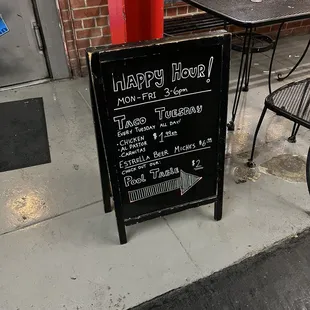 Happy Hour!
MON-FRI 3-6pm
Taco Tuesday
Every Tuesday All Day!
- Chicken
- Al Pastor $1.99ea
- Carnitas
Estrella Beer Miches $6.99
Check out our $2
Pool Table